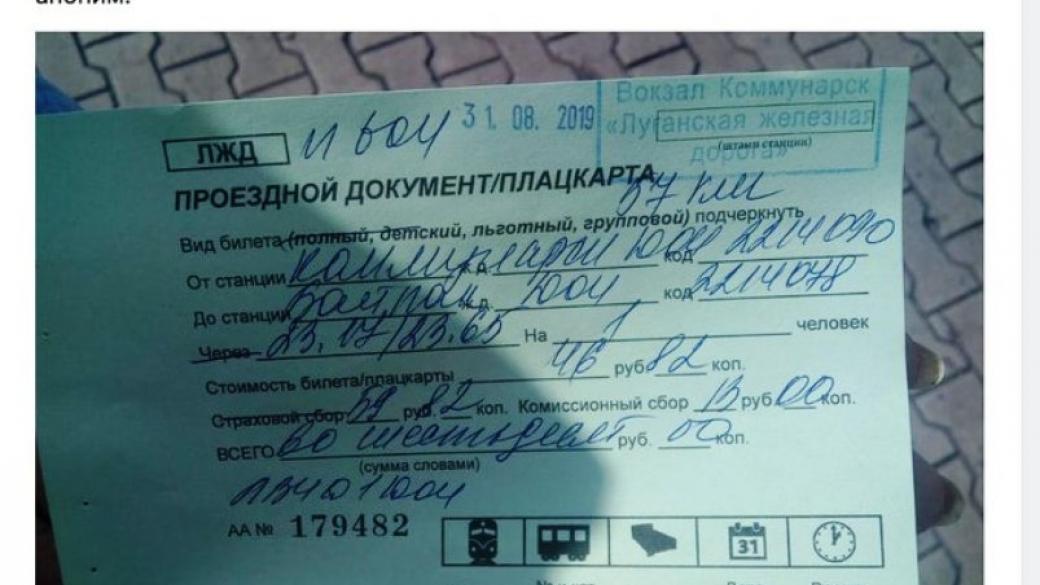 аноним.
ЛЖД 31. 08. 2019
Вокзал Коммунарск
«Луганская железная
дорога»
(штамп станции)
ПРОЕЗДНОЙ ДОКУМЕНТ/ПЛАЦКАРТА
57 км
Вид билета (полный, детский, льготный, групповой) подчеркнуть
От станции ж.д. код 2214090
До станции ж.д. код 2214078
Через 23.17/23.65 На 1 человек
Стоимость билета/плацкарты 46 руб 82 коп.
Страховой сбор 59 руб. 82 коп. Комиссионный сбор 13 руб 00 коп.
ВСЕГО шестьдесят руб. 00 коп.
(сумма словами)
АА № 179482
31